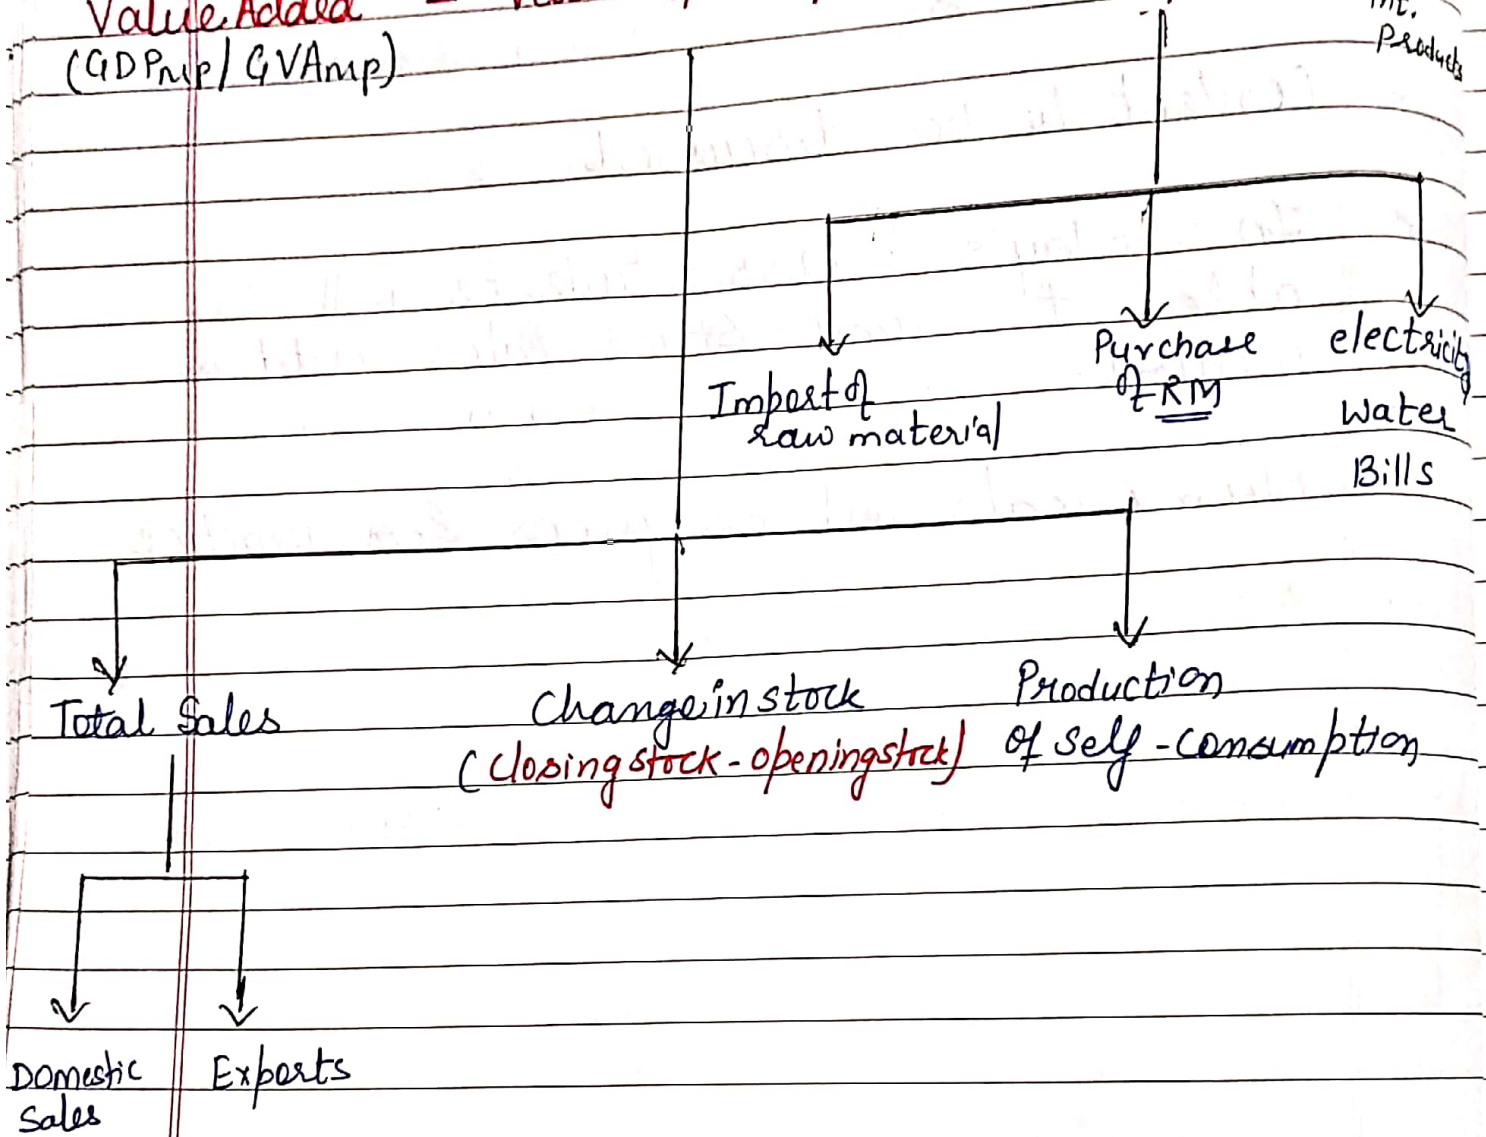 Value Added =
(GDPmp/GVAmp)
Int.
Products
Import of
raw material
Purchase
of RM
electricity
Water
Bills
Total Sales
Change in stock
(closing stock - opening stock)
Production
of self-consumption
Domestic
Sales
Exports